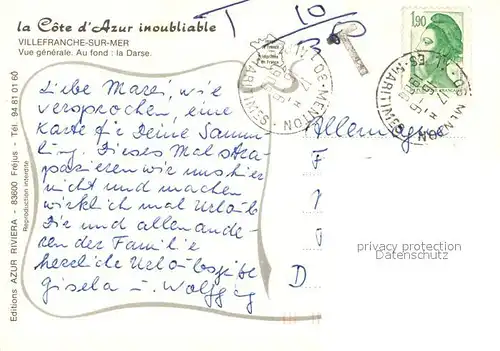 la Côte d'Azur inoubliable
VILLEFRANCHE-SUR-MER
Vue générale. Au fond : la Darse.
T 10
1,90
MENTON
Allemagne
F
D
Liebe Marei, wie
versprochen, eine
Karte für Deine Samm
lung. Dieses Mal stra-
pazieren wir uns hier
nicht und machen
wirklich mal Urlaub
Dir und allen ande-
ren der Familie
herzliche Urlaubsgrüße
Gisela u. Wolfgang
privacy protection
Datenschutz
Editions AZUR RIVIERA - 83600 Fréjus - Tél. 94 81 01 60
Reproduction interdite